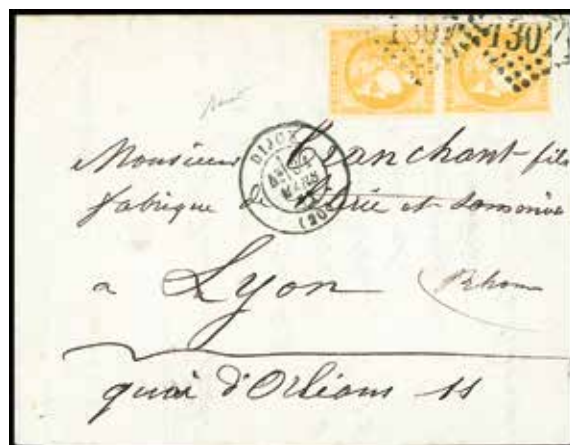 1307 1307
DIJON
MARS
(20)
Monsieur Tranchant fils
fabrique de et
a Lyon (Rhone
quai d'Orléans 11